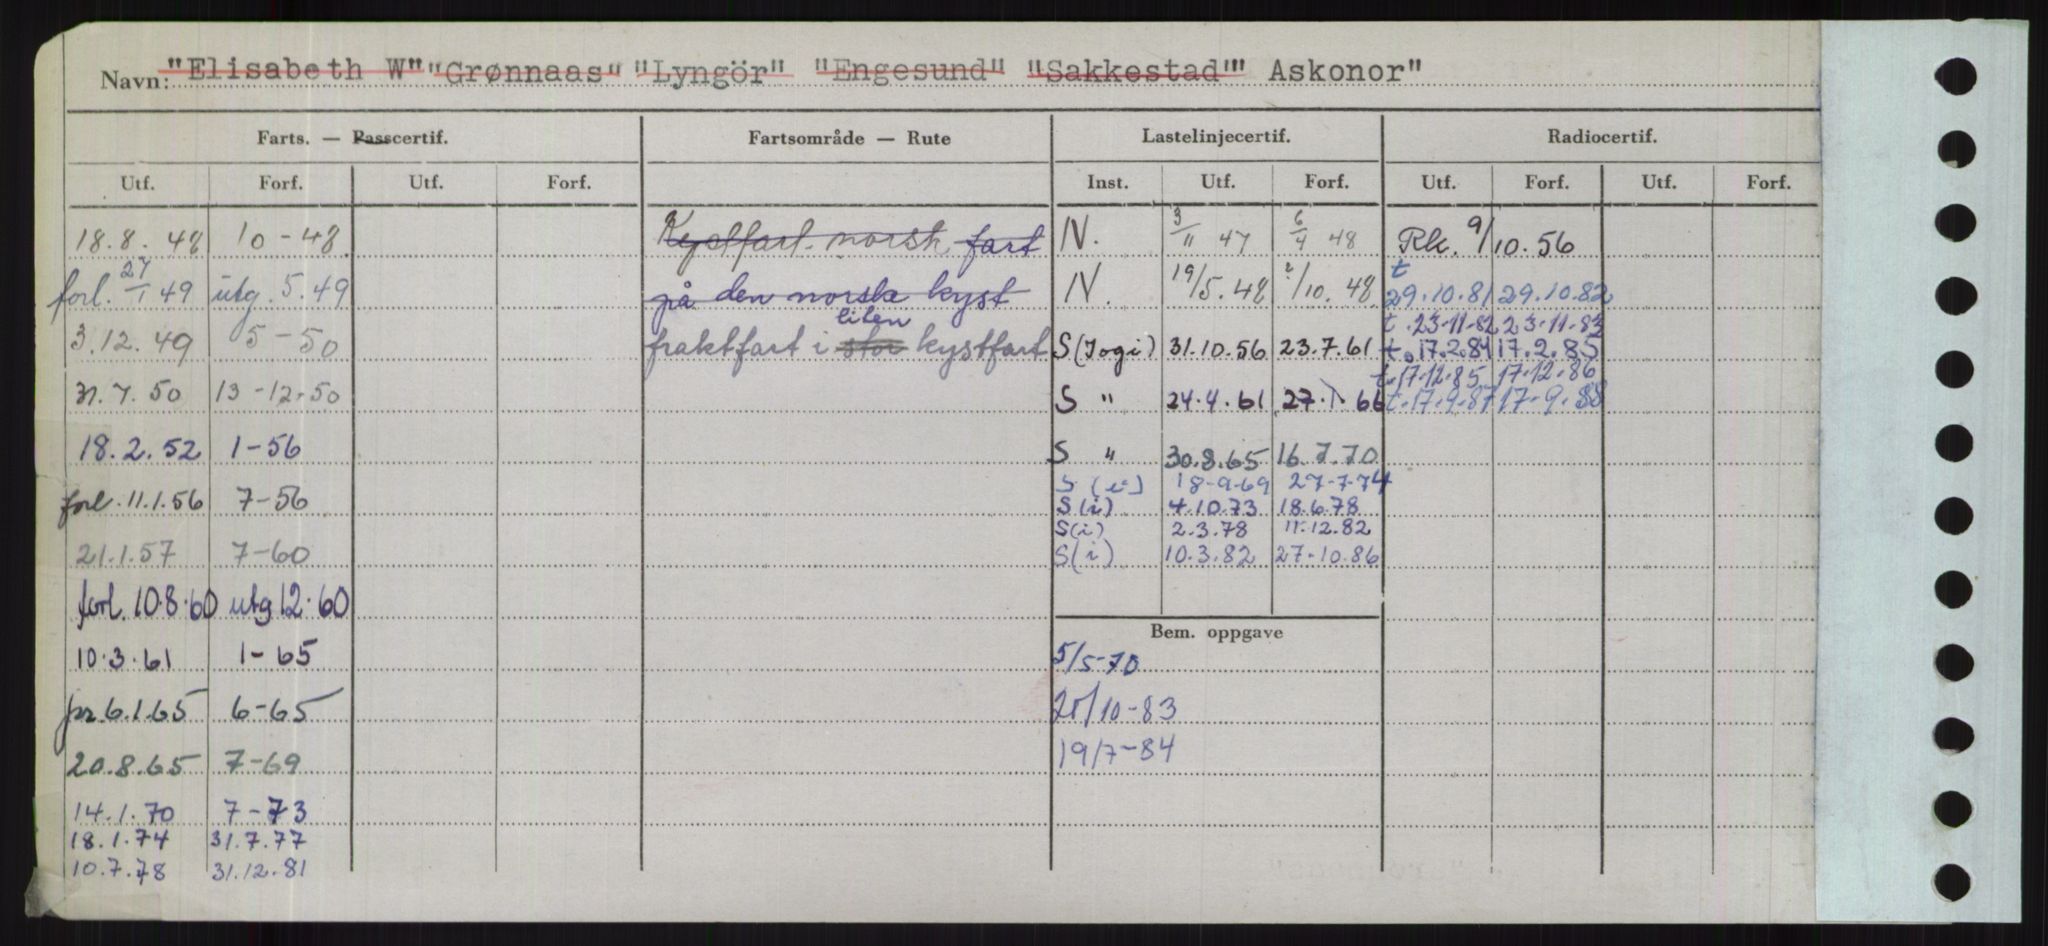 Navn: "Elisabeth W" "Grønnaas" "Lyngör" "Engesund" "Sakkestad"" Askonor"
Farts. — Passcertif. Fartsområde — Rute Lastelinjecertif. Radiocertif.
Utf. Forf. Utf. Forf. Inst. Utf. Forf. Utf. Forf. Utf. Forf.
18.8.48 10-48 Kystfart norsk fart IV. 3/11 47 6/4 48 Rk. 9/10.56
forl. 27/1 49 utg. 5.49 på den norske kyst IV. 19/5.48 2/10.48 t 29.10.81 29.10.82
t. 23-11-82 23-11-83
3.12.49 5-50 fraktfart i stor liten kystfart S (Jogi) 31.10.56 23.7.61 t. 17.2.84 17.2.85
t. 17.12.85 17.12.86
7.50 13-12-50 S " 24.4.61 27.1.66 t. 17.9.87 17.9.88
18.2.52 1-56 S " 30.8.65 16.7.70
S (i) 18-9-69 27-7-74
forl. 11.1.56 7-56 S(i) 4.10.73 18.6.78
S(i) 2.3.78 11.12.82
21.1.57 7-60 S(i) 10.3.82 27.10.86
forl. 10.8.60 utg 12.60
Bem. oppgave
10.3.61 1-65 5/5-70
6.1.65 6-65 /10-83
20.8.65 7-69 19/7-84
14.1.70 7-73
18.1.74 31.7.77
10.7.78 31.12.81